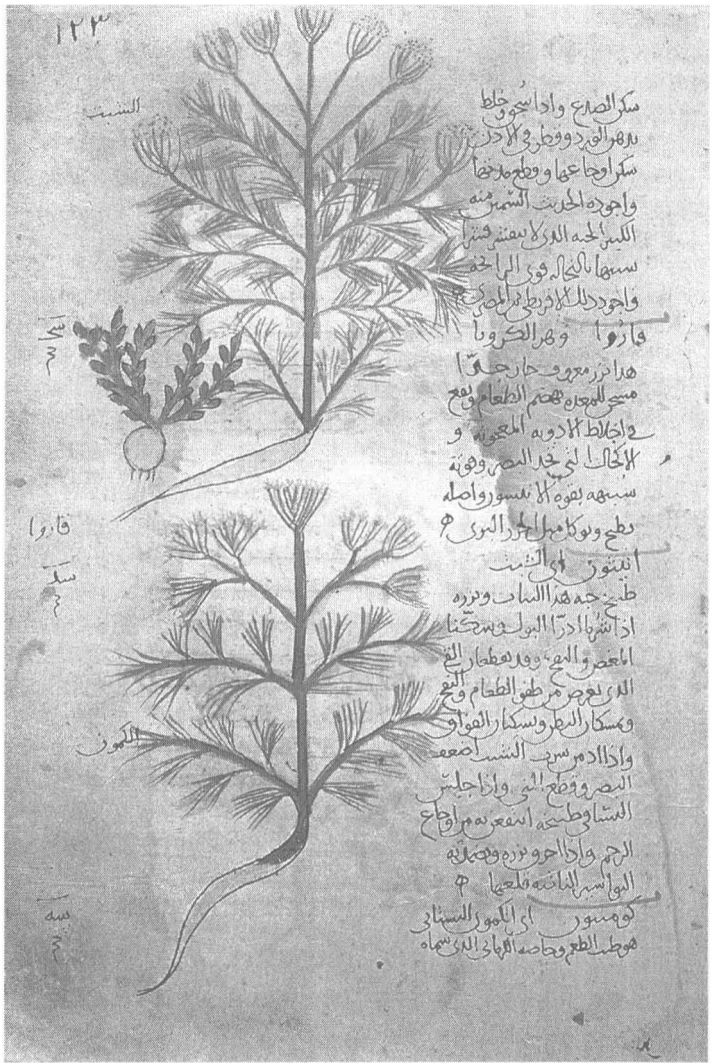 ١٢٣
الشبت
سكن الصدع واذا سحق وخلط
بدهن الورد وقطر في الاذن
سكن اوجاعها وقطع مدتها
واجوده الحديث السمين منه
الكبير الحبه الذي لا يتقشر قشرا
شبيها بالنخاله قوى الرائحة
واجود ذلك الاقريطي ثم المصري
قاروا وهو الكرويا
هذا بزر معروف حار جدا
مسخن للمعده يهضم الطعام ويقع
في اخلاط الادويه المعجونه و
الاكحال التي تحد البصر وقوته
شبيهه بقوه الانيسون واصله
يطبخ ويوكل مثل الجزر البرى
انيثون اى الشبت
طبيخ جمه هذا النبات وبزره
اذا شربا ادرا البول وسكنا
المغص والنفخ وقد يقطعان القى
الذي يعرض من طفو الطعام والنفخ
ويمسكان البطن ويسكنان الفواق
واذا ادمن شرب الشبت اضعف
البصر وقطع المنى واذا جلس
النسا في طبيخه انتفعن به من اوجاع
الرحم واذا احرق بزره وضمد به
البواسير الناتيه قلعها
كومينون اى الكمون البستاني
هو طيب الطعم وخاصه الكرماني الذي سماه
قاروا
الكمون